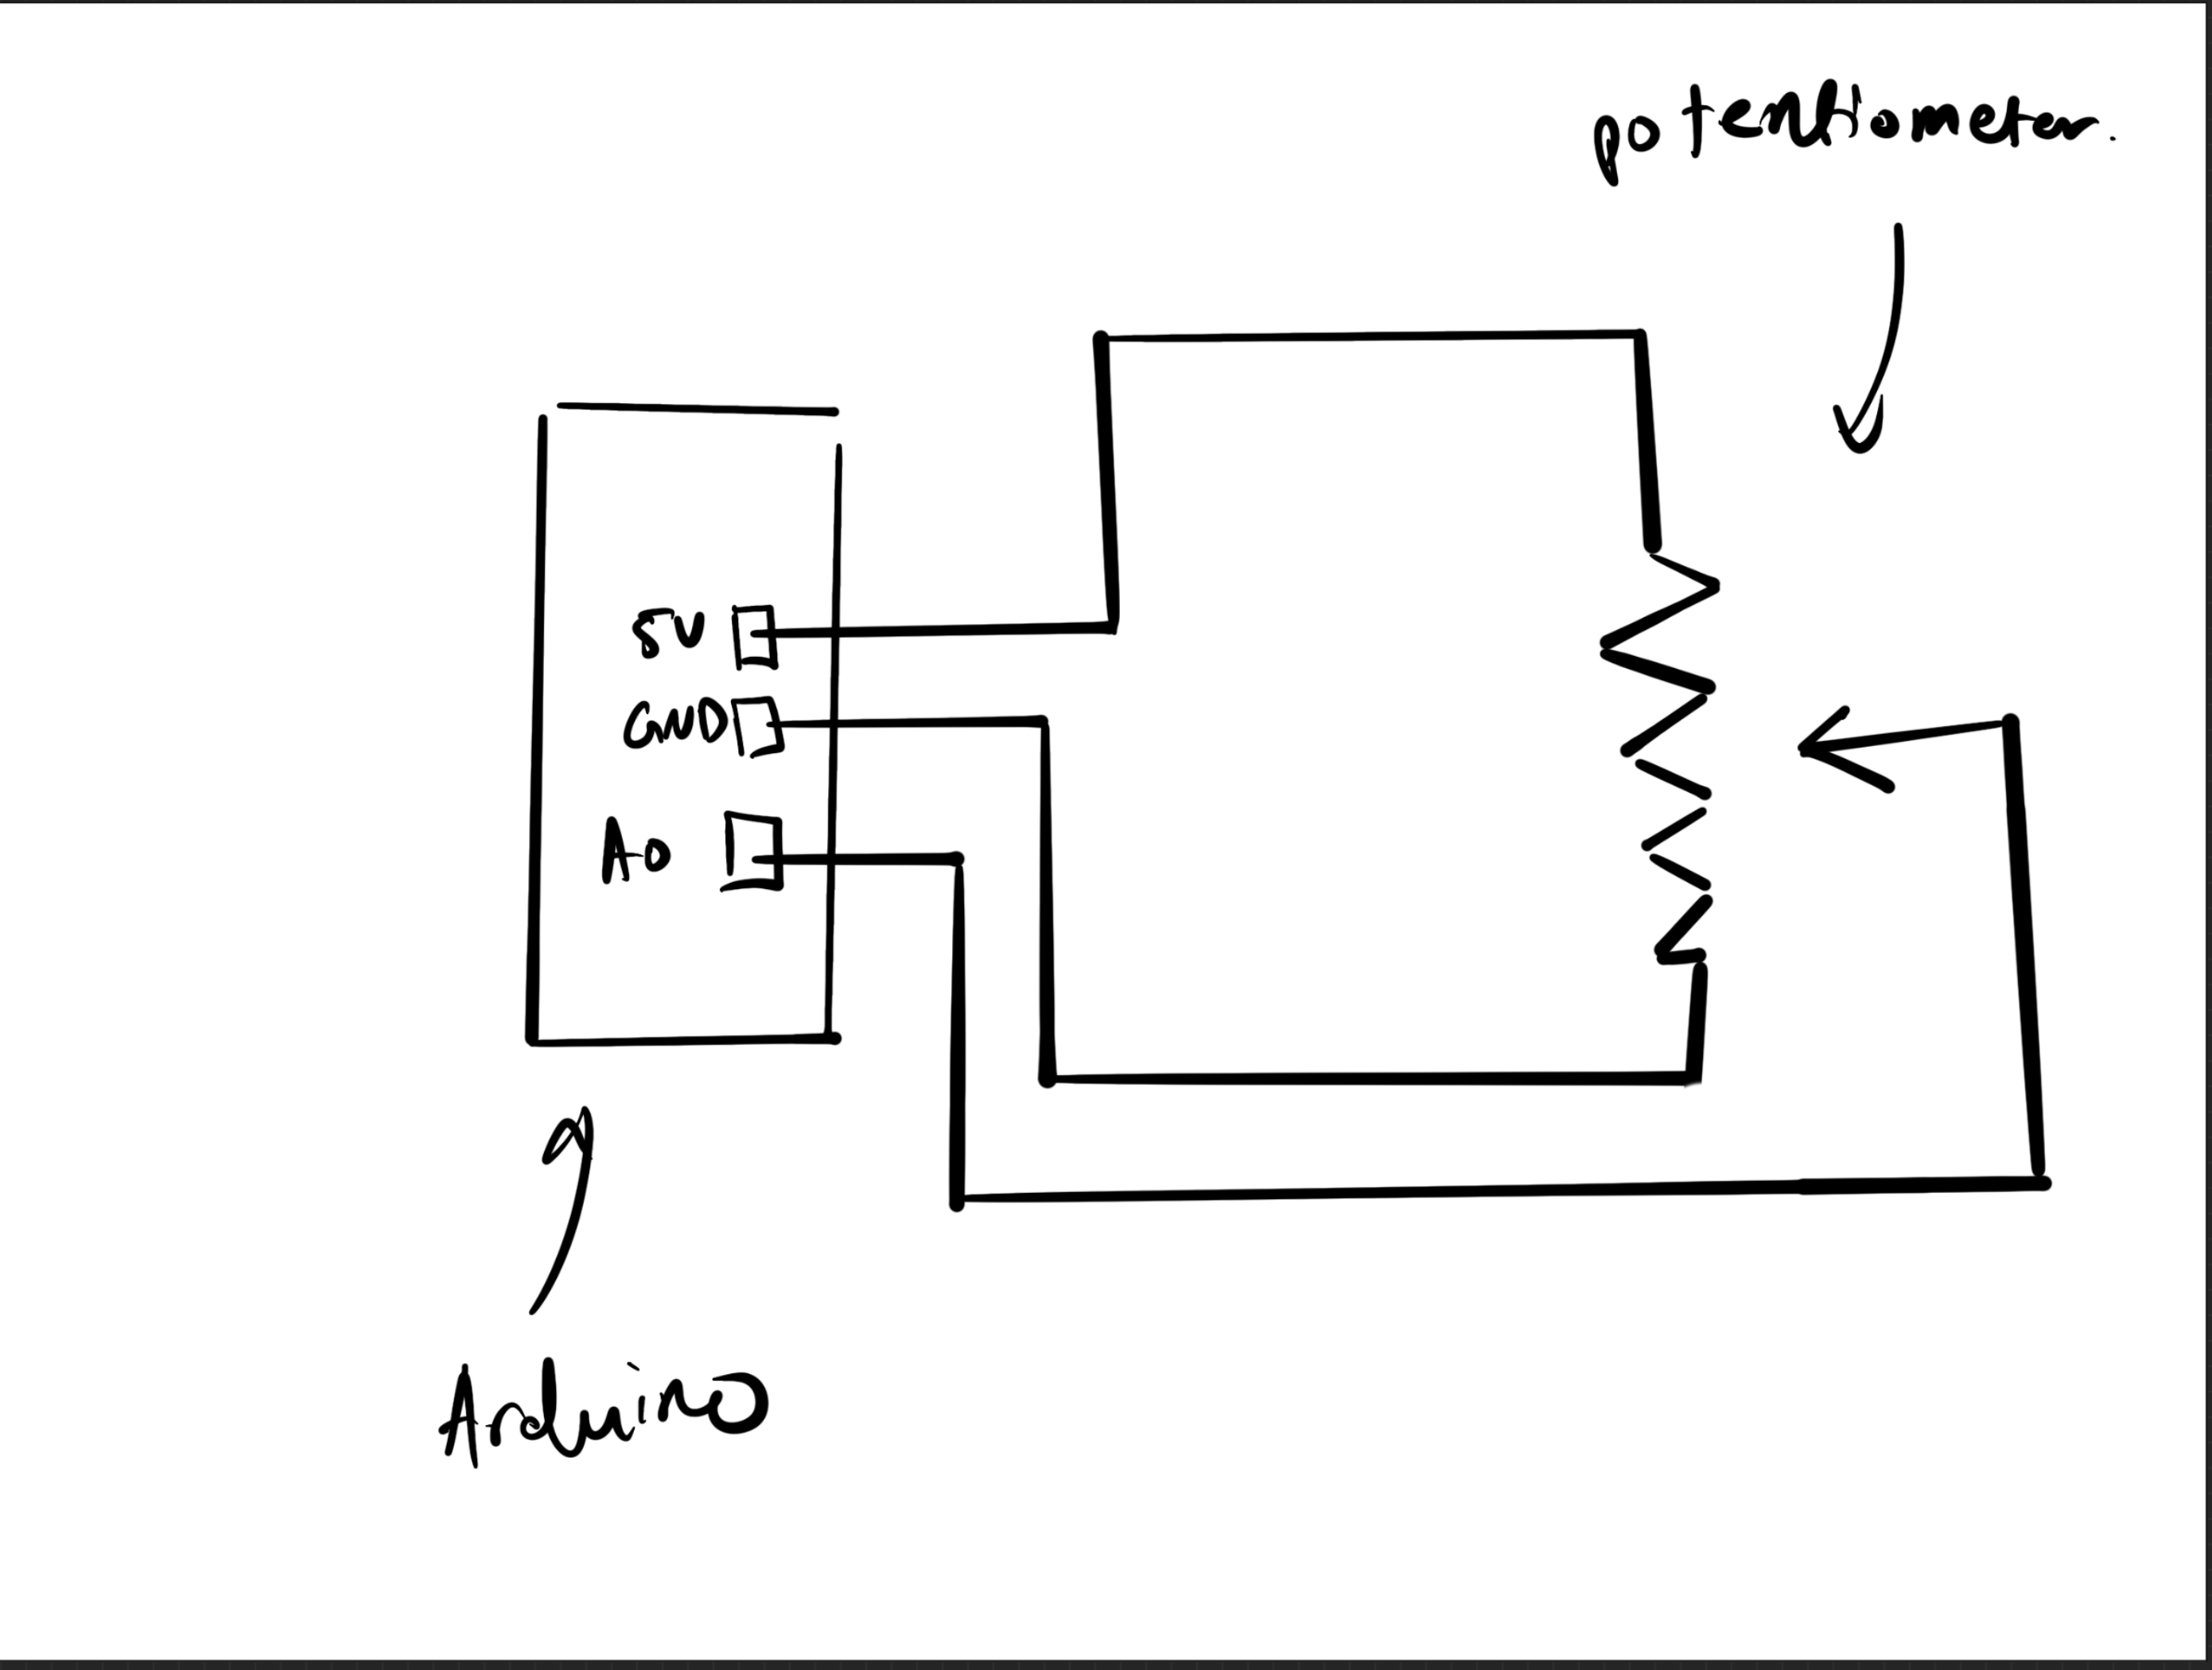 potentiometer.
5V
GND
A0
Arduino